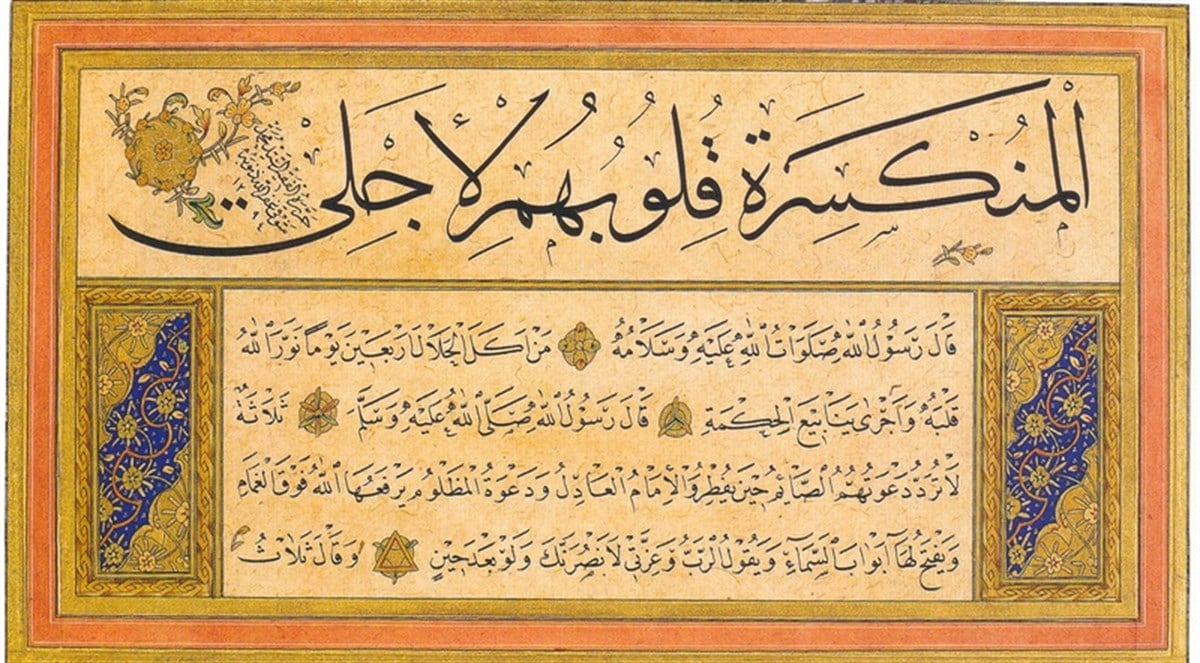 اَلْمُنْكَسِرَةِ قُلُوبُهُمْ لِأَجْلِي
قَالَ رَسُولُ اللهِ صَلَوَاتُ اللهِ عَلَيْهِ وَسَلَامُهُ مَنْ اَكَلَ الْحَلَالَ اَرْبَعِينَ يَوْمًا نَوَّرَ اللهُ
قَلْبَهُ وَاَجْرٰى يَنَابِيعَ الْحِكْمَةِ قَالَ رَسُولُ اللهِ صَلَّى اللهُ عَلَيْهِ وَسَلَّمَ ثَلَاثَةٌ
لَا تُرَدُّ دَعْوَتُهُمُ الصَّائِمُ حِينَ يُفْطِرُ وَالْاِمَامُ الْعَادِلُ وَدَعْوَةُ الْمَظْلُومِ يَرْفَعُهَا اللهُ فَوْقَ الْغَمَامِ
وَيَفْتَحُ لَهَا اَبْوَابَ السَّمَاءِ وَيَقُولُ الرَّبُّ وَعِزَّتِي لَاَنْصُرَنَّكَ وَلَوْ بَعْدَ حِينٍ وَقَالَ ثَلَاثُ